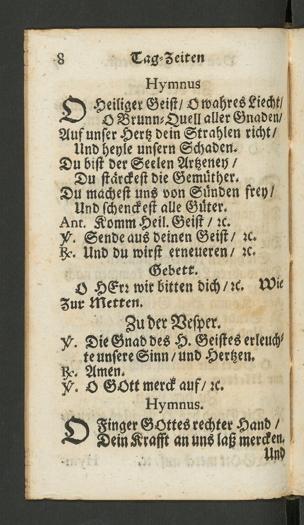 8 Tag-Zeiten
Hymnus
O Heiliger Geist/ O wahres Liecht/
O Brunn-Quell aller Gnaden/
Auf unser Hertz dein Strahlen richt/
Und heyle unsern Schaden.
Du bist der Seelen Artzeney/
Du stärckest die Gemüther.
Du machest uns von Sünden frey/
Und schenckest alle Güter.
Ant. Komm Heil. Geist/ ꝛc.
℣. Sende aus deinen Geist/ ꝛc.
℟. Und du wirst erneueren/ ꝛc.
Gebett.
O HErr wir bitten dich/ ꝛc. Wie
Zur Metten.
Zu der Vesper.
℣. Die Gnad des H. Geistes erleuch-
te unsere Sinn/ und Hertzen.
℟. Amen.
℣. O GOtt merck auf/ ꝛc.
Hymnus.
O Finger GOttes rechter Hand/
Dein Krafft an uns laß mercken.
Und